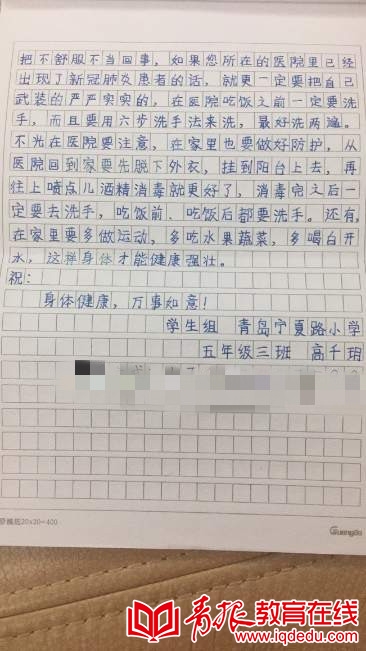 把不舒服不当回事，如果您所在的医院里已经
出现了新冠肺炎患者的话，就更一定要把自己
武装的严严实实的，在医院吃饭之前一定要洗
手，而且要用六步洗手法来洗，最好洗两遍。
不光在医院要注意，在家里也要做好防护，从
医院回到家要先脱下外衣，挂到阳台上去，再
往上喷点儿酒精消毒就更好了，消毒完之后一
定要去洗手，吃饭前、吃饭后都要洗手。还有，
在家里要多做运动，多吃水果蔬菜，多喝白开
水，这样身体才能健康强壮。
祝：
身体健康，万事如意！
学生组 青岛宁夏路小学
五年级三班 高千玥
20×20=400
Guangbo
青报教育在线
www.iqdedu.com